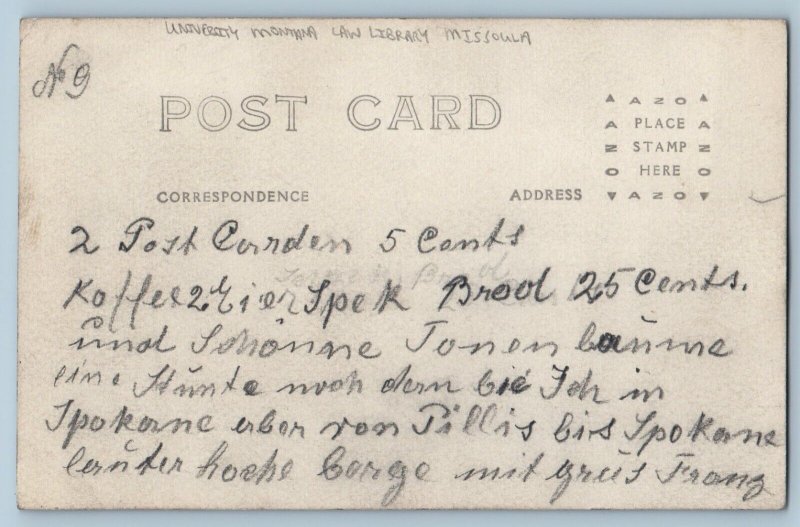 UNIVERSITY MONTANA LAW LIBRARY MISSOULA
No 9
POST CARD
AZO
PLACE
STAMP
HERE
AZO
CORRESPONDENCE
ADDRESS
2 Post Carden 5 Cents
Koffee 2 Eier Spek Brod 25 Cents.
und Schönne Tonen baume
eine Stunte noch dem bie Ich in
Spokane aber von Pillis bis Spokane
lauter hoche berge mit grüs Franz